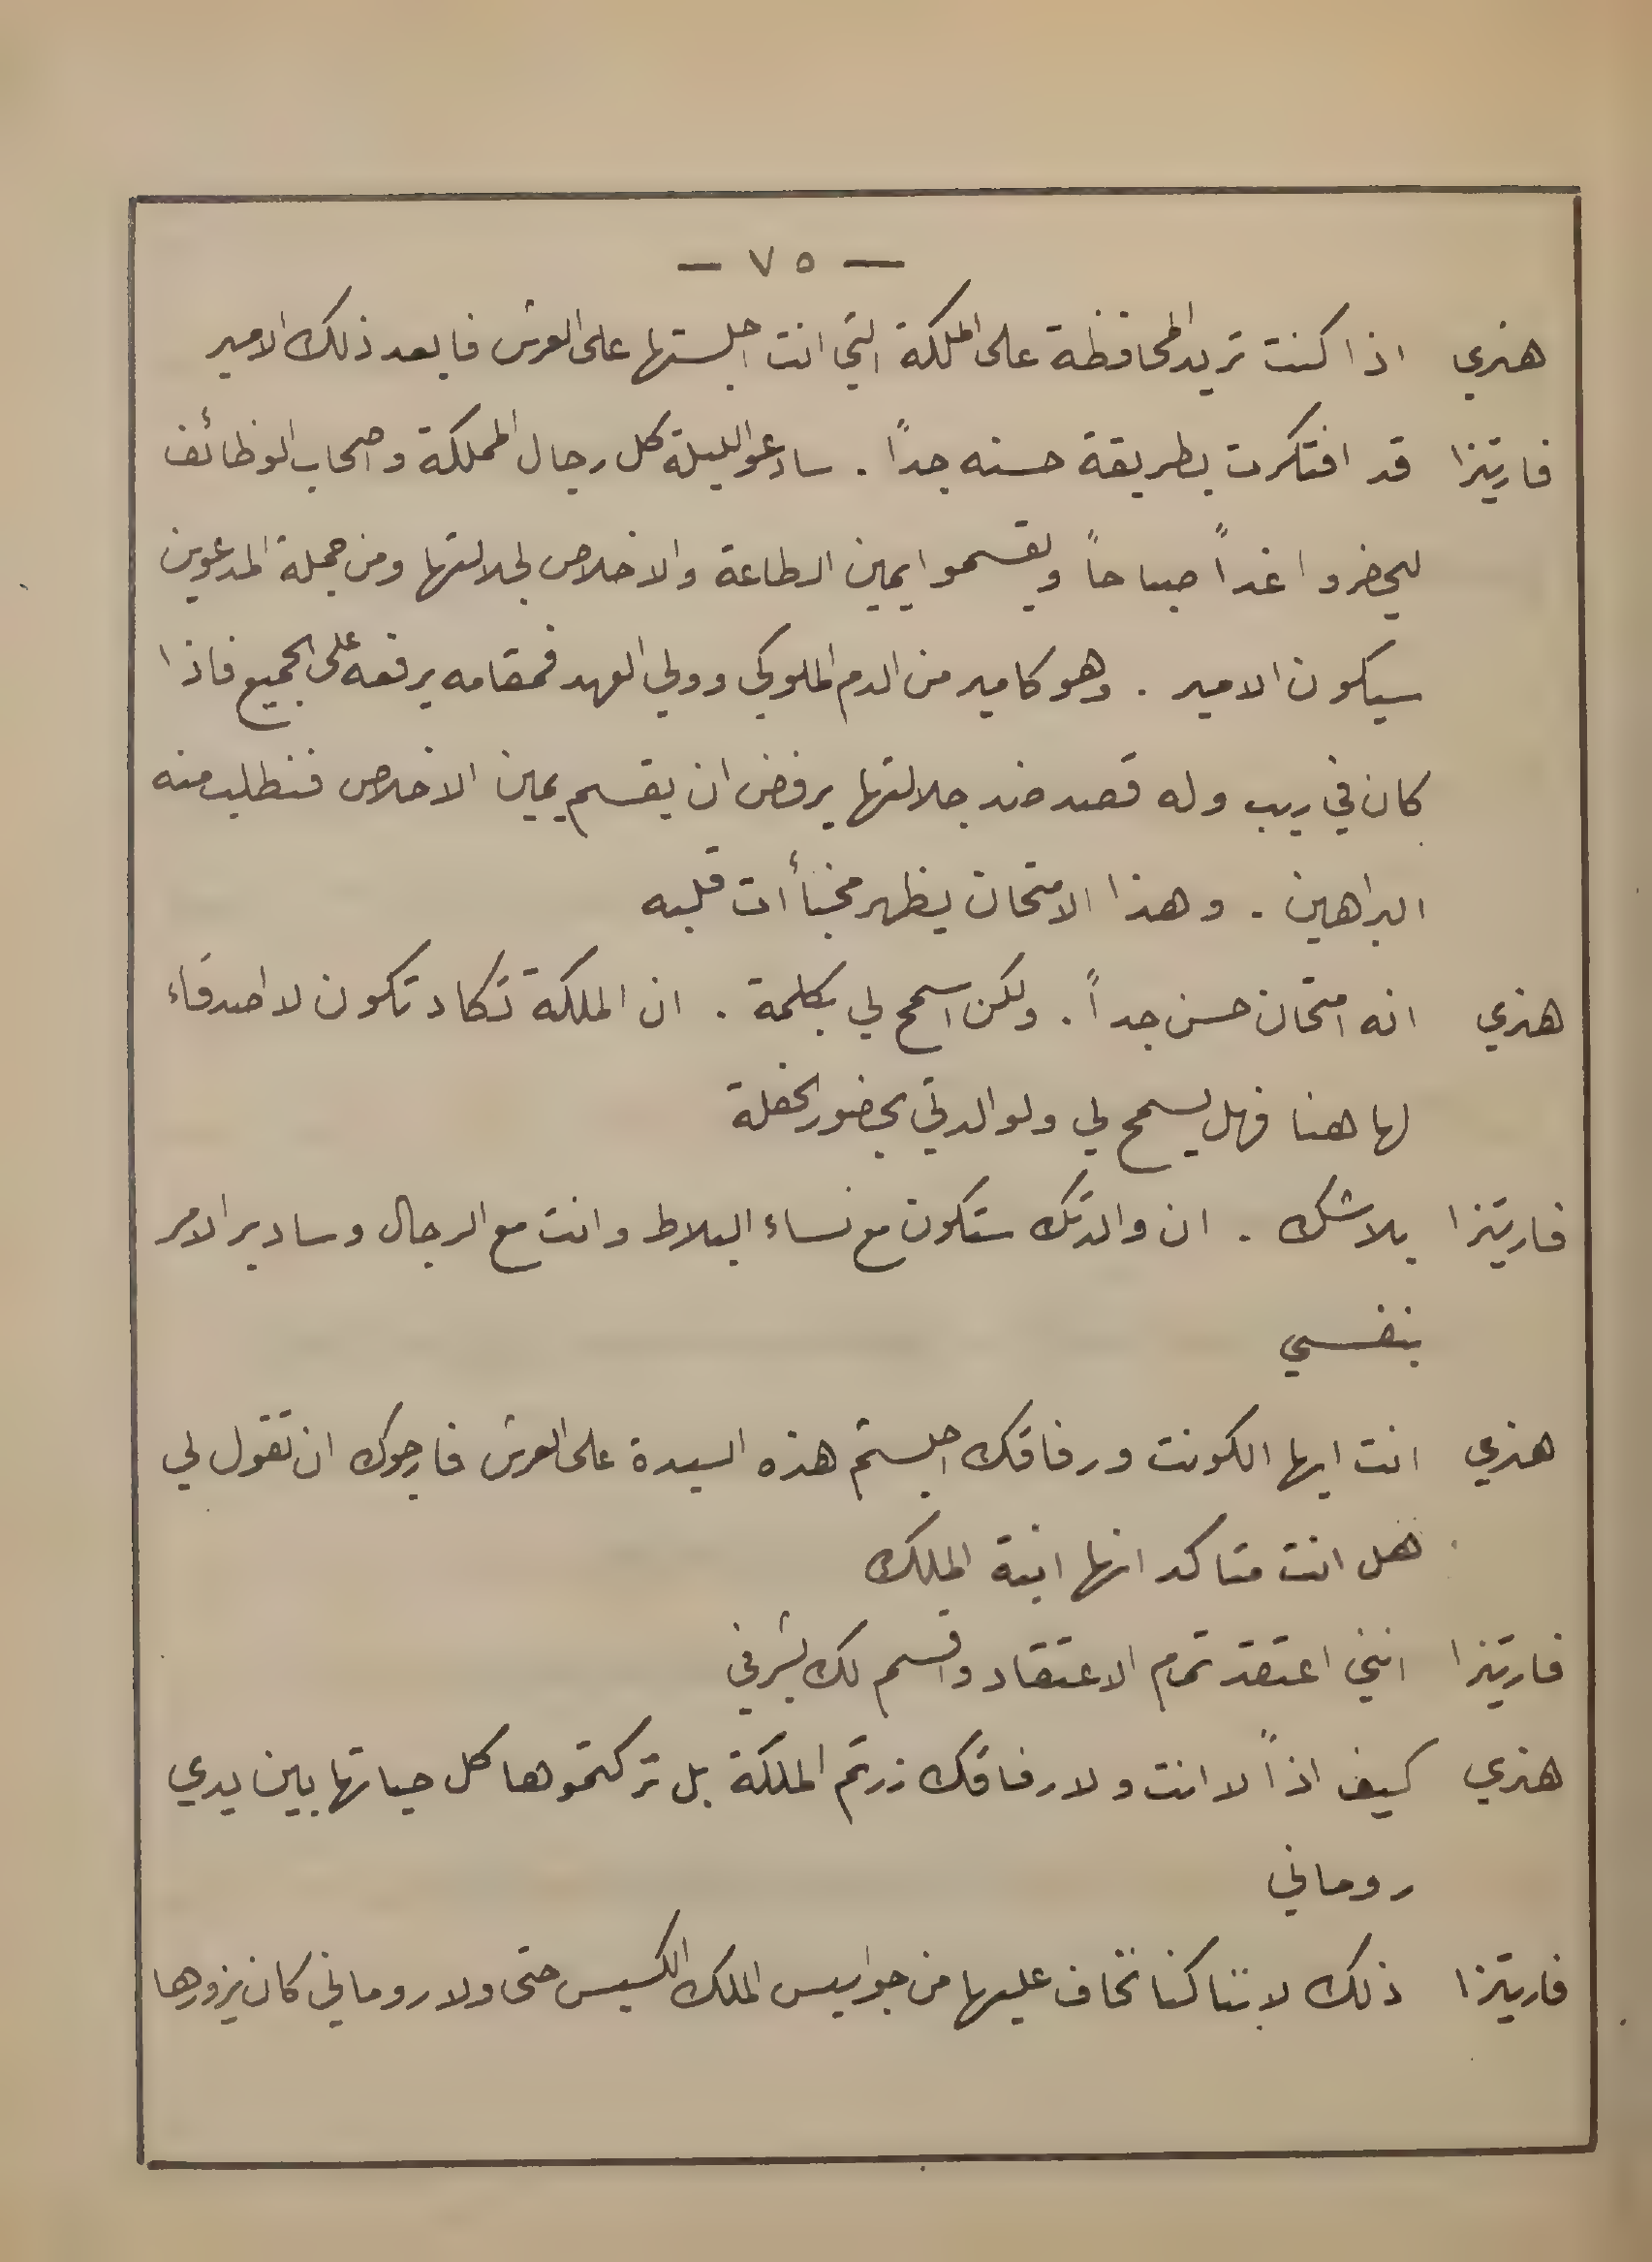 — ٧٥ —
هنري اذا كنت تريد المحافظة على الملكة التي انت اجلستها على العرش فابعد ذلك الامير
فاريتزا قد افتكرت بطريقة حسنه جداً . سادعو الليلة كل رجال المملكة واصحاب الوظائف
ليحضروا غداً صباحاً ويقسموا يمين الطاعة والاخلاص لجلالتها ومن جملة المدعوين
سيكون الامير . وهو كامير من الدم الملوكي وولي العهد فمقامه يرفعه على الجميع فاذا
كان في ريب وله قصد ضد جلالتها يرفض ان يقسم يمين الاخلاص فنطلب منه
البراهين . وهذا الامتحان يظهر مخبأات قلبه
هنري انه امتحان حسن جداً . ولكن اسمح لي بكلمة . ان الملكة تكاد تكون لا اصدقاء
لها هنا فهل يسمح لي ولوالدتي بحضور الحفلة
فاريتزا بلا شك . ان والدتك ستكون مع نساء البلاط وانت مع الرجال وسادبر الامر
بنفسي
هنري انت ايها الكونت ورفاقك اجلستم هذه السيدة على العرش فارجوك ان تقول لي
هل انت متاكد انها ابنة الملك
فاريتزا انني اعتقد تمام الاعتقاد واقسم لك بشرفي
هنري كيف اذاً لا انت ولا رفاقك زرتم الملكة بل تركتموها كل حياتها بين يدي
روماني
فاريتزا ذلك لاننا كنا نخاف عليها من جواسيس الملك الكسيس حتى ولا روماني كان يزورها